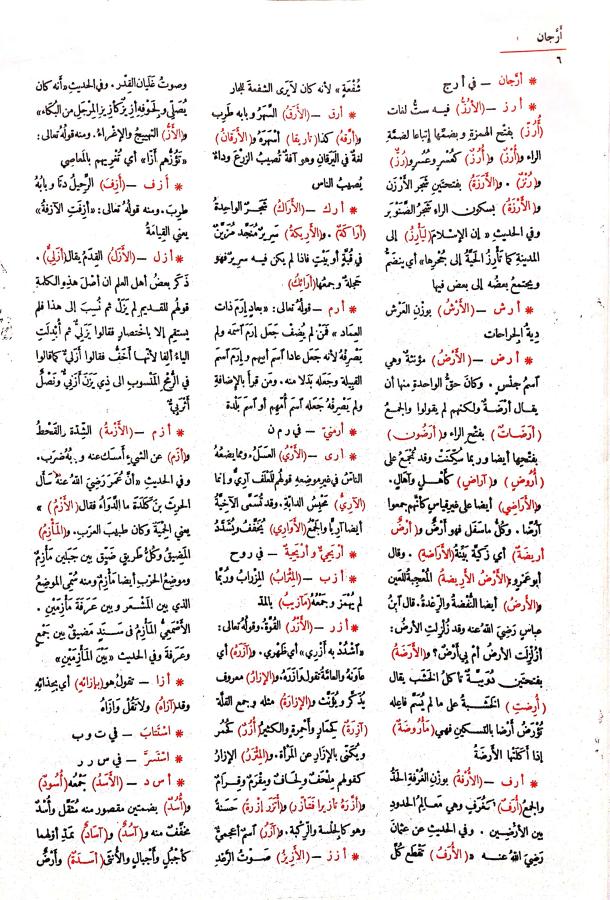 أَرَّجان
٦
* أرَّجان — في أ ر ج
* أ ر ز — (الأَرُزُّ) فيــه ستُّ لغات
(أَرُزٌّ) بفتح الهمزة و بضمِّها إتباعا لضمَّةِ
الراء و(أُرْزٌ) و(أُرُزٌ) كعُسْرٍ وعُسُرٍ و(رُزٌّ)
و(رُنْزٌ) . و(الأَرَزَةُ) بفتحتين شجر الأَرْزَن
و(الأَرْزَةُ) بسكون الراء شجرُ الصَّنَوْبَر
وفي الحديث « إن الإسْلامَ (لَيَأْرِزُ) إلى
المدينةِ كما تَأْرِزُ الحَيَّةُ إلى جُحْرِها» أي ينضمُّ
ويجتمعُ بعضُه إلى بعض فيها
* أ ر ش — (الأَرْشُ) بوزن العَرْش
دِيَةُ الجراحات
* أ ر ض — (الأَرْضُ) مؤنثةٌ وهي
اسمُ جِنْسٍ . وكان حقُّ الواحدةِ منها أن
يقـال أرْضَةٌ ولكنهم لم يقولوا والجمعُ
(أرَضاتٌ) بفتح الراء و(أَرَضُون)
بفتحها أيضا وربما سُكِّنَت وقد تُجْمَع على
(أُرُوضٍ) و(آراضٍ) كأهْـلٍ وآهالٍ.
و(الأَراضي) أيضا على غيرقياس كأنهم جمعوا
آرُضًا . وكلُّ ماسَفَل فهو أرْضٌ و(أَرْضٌ
أَريضةٌ) أي زَكِيَّة بَيِّنَة (الأَرَاضةِ) . وقال
أبوعَمْرٍو (الأَرْضُ الأَريضةُ) المُعْجِبةُ للعَين
و(الأَرْضُ) أيضا النُّفْضَةُ والرِّعْدةُ. قال ابنُ
عباس رَضِيَ اللهُ عنه وقد زُلْزِلَت الأرضُ:
أزُلْزِلَت الأرضُ أم بِي أَرْضٌ؟ و(الأَرَضَةُ)
بفتحتين دُوَيْبـةٌ تأكلُ الخَشَب يقال
(أُرِضَتِ) الخَشَبةُ على ما لم يُسَمَّ فاعله
تُؤْرَضُ أرْضا بالتسكين فهي (مَأْرُوضَةٌ)
إذا أَكَلَتْها الأَرَضةُ
* أ ر ف — (الأُرْفَةُ) بوزن الغُرْفة الحَدُّ
والجمعُ (أُرَفٌ) كغُرَفٍ وهي مَعـالِمُ الحدودِ
بين الأَرَضِـين . وفي الحديث عن عثمانَ
رَضِيَ اللهُ عنـــه «(الأُرَفُ) تَقْطَع كُلَّ
شُفْعَةٍ» لأنه كان لايَرَى الشفعةَ للجار
* أ ر ق — (الأَرَقُ) السَّهَرُ وبابه طَرِبَ
و(أرَّقَه) كذا (تأريقا) أسْهَرَهُ و(الأَرَقَانُ)
لغةٌ في اليَرَقانِ وهو آفةٌ تُصيبُ الزرعَ وداءٌ
يُصيبُ الناسَ
* أ ر ك — (الأَرَاكُ) شجَــرٌ الواحِدةُ
(أَراكَةٌ). و(الأَرِيكةُ) سَريرٌ مُنَجَّد مُزَيَّنٌ
في قُبَّةٍ أو بَيْتٍ فاذا لم يكن فيـه سريرٌ فهو
حَجَلةٌ وجمعُها (أرائِكُ)
* أ ر م — قولهُ تعالى: «بعادٍ إرَمَ ذات
العمَاد» فَمَنْ لم يُضِفْ جعل إرَمَ اسمَه ولم
يَصْرِفْهُ لأنه جعل عادا اسمَ أبيهم و إرَمَ اسمَ
القبيلة وجعله بَدلا منه. ومن قرأ بالإضافةِ
ولم يَصْرِفْه جعله اسمَ أُمِّهم أو اسمَ بَلْدة
* أرمنيّ — في ر م ن
* أ ر ى — (الأَرْىُ) العَسَلُ. وممايضعُهُ
الناسُ في غيرموضعِهِ قولُهم للعَلَف آرِيٌّ وإنما
(الآرِيُّ) مَحْبِسُ الدابةِ. وقد تُسَمَّى الآخِيَّةُ
أيضا آرِيًّا والجَمْعُ (الأَوَارِي) يُخَفَّفُ ويُشَدَّدُ
* أَرْيَحِيٌّ وأَرْيَحِيَّة — في روح
* أ ز ب — (المِئْزَابُ) المِزْرَابُ ورُبَّما
لم يُهْمَز وجَمْعُهُ (مآزيبُ) بالمدّ
* أ ز ر — (الأَزْرُ) القُوَّةُ. وقولُهُ تعالى:
«اُشْدُدْ به أَزْرِي» أي ظَهْري. و(آزَرَهُ) أي
عاوَنَه والعامَّةُ تقول وازَرَهُ. و(الإزارُ) معروف
يُذَكَّر و يُؤَنَّث و(الإزارَةُ) مثله وجمع القلَّة
(آزِرَةٌ) كِمَارٍ وأَحْمِرة والكثير (أُزُرٌ) كُحُمُر
ويُكْنَى بالإزارِ عن المَرأة. و(المِئْزَرُ) الإزارُ
كقولهم مِلْحَفٌ ولِحافٌ ومِقْرَمٌ وقِــرامٌ
و(أزَّرَهُ تأزيرا فَتَأَزَّرَ) و(اُتْزَر إزْرةً) حَسَنَةً
وهو كالجِلْسة والرِّكْبةِ. و(آزَرُ) اسمٌ أعجميٌّ
* أ ز ز — (الأَزِيزُ) صَــوْتُ الرَّعْدِ
وصوتُ غَليَانِ القِدْر . وفي الحديث «أنه كان
يُصَلِّي و لجَوْفِه أَزِيزٌ كأَزِيزِ المِرْجَلِ من البُكاء»
و(الأَزُّ) التهييجُ والإغراءُ. ومنه قولُهُ تعالى:
«تَؤُزُّهم أَزًّا» أي تُغْرِيهم بالمعاصي
* أ ز ف — (أَزِفَ) الرَّحِيلُ دَنَا وبابُهُ
طَرِبَ. ومنه قولُهُ تعالى: «أَزِفَتِ الآزِفَةُ»
يعني القيامةَ
* أ ز ل — (الأَزَلُ) القِدَمُ يقال (أَزَلِيٌّ) .
ذَكر بعضُ أهل العلم ان أصْلَ هذه الكلمةِ
قولُهم للقديم لم يَزَلْ ثم نُسِبَ إلى هذا فلم
يستقم إلا باختصار فقالوا يَزَلِيٌّ ثم أُبْدِلَتِ
الياءُ ألِفا لأنها أَخَفُّ فقالوا أزَلِيٌّ كما قالوا
في الرُّمْحِ المَنْسوب الى ذِي يَزَنَ أَزَنِيٌّ ونَصْلٌ
أَثْرَبِيٌّ
* أ ز م — (الأَزْمَةُ) الشِّدَّة والقَحْطُ
و(أَزَمَ) عن الشيء أمسك عنه و بابُهُ ضَرَب.
وفي الحديث «أنَّ عُمَرَ رَضِيَ اللهُ عنهُ سأل
الحَرِثَ بنَ كَلَدَةَ ما الدَّوَاءُ فقال (الأَزْمُ) »
يعني الحِمْيَةَ وكان طبيبَ العربِ. و(المَأْزِمُ)
المَضِيقُ وكُلُّ طريقٍ ضَيِّق بين جَبَلين مَأْزِمٌ
وموضِعُ الحَرْب أيضا مَأْزِمٌ ومنه سُمِّي الموضِعُ
الذي بين المَشْــعَر وبين عَــرَفةَ مَأْزِمَيْنِ .
الأصْمَعِيُّ المَأْزِمُ في سَنَـدٍ مَضِيقٌ بين جَمْعٍ
وعَــرَفةَ وفي الحديث «بَيْنَ المَأْزِمَيْنِ»
* أ ز ا — تقول هُو (بإزائِهِ) أي بِحِذائِهِ
وقد (آزَاهُ) ولا تَقُلْ وَازَاهُ
* اسْتَتَابَ — في ت و ب
* اسْتَسَرَّ — في س ر ر
* أ س د — (الأَسَدُ) جَمْعُه (أُسُودٌ)
و(أُسُدٌ) بضمتين مقصور منه مُثَقَّل وأُسْدٌ
مخفَّفٌ منه و(آسُدٌ) و(آسَادٌ) بمَدِّ أوَّلهما
كأَجْبُلٍ وأَجْبالٍ والأنثَى (أَسَدَةٌ) وأَرْضٌ